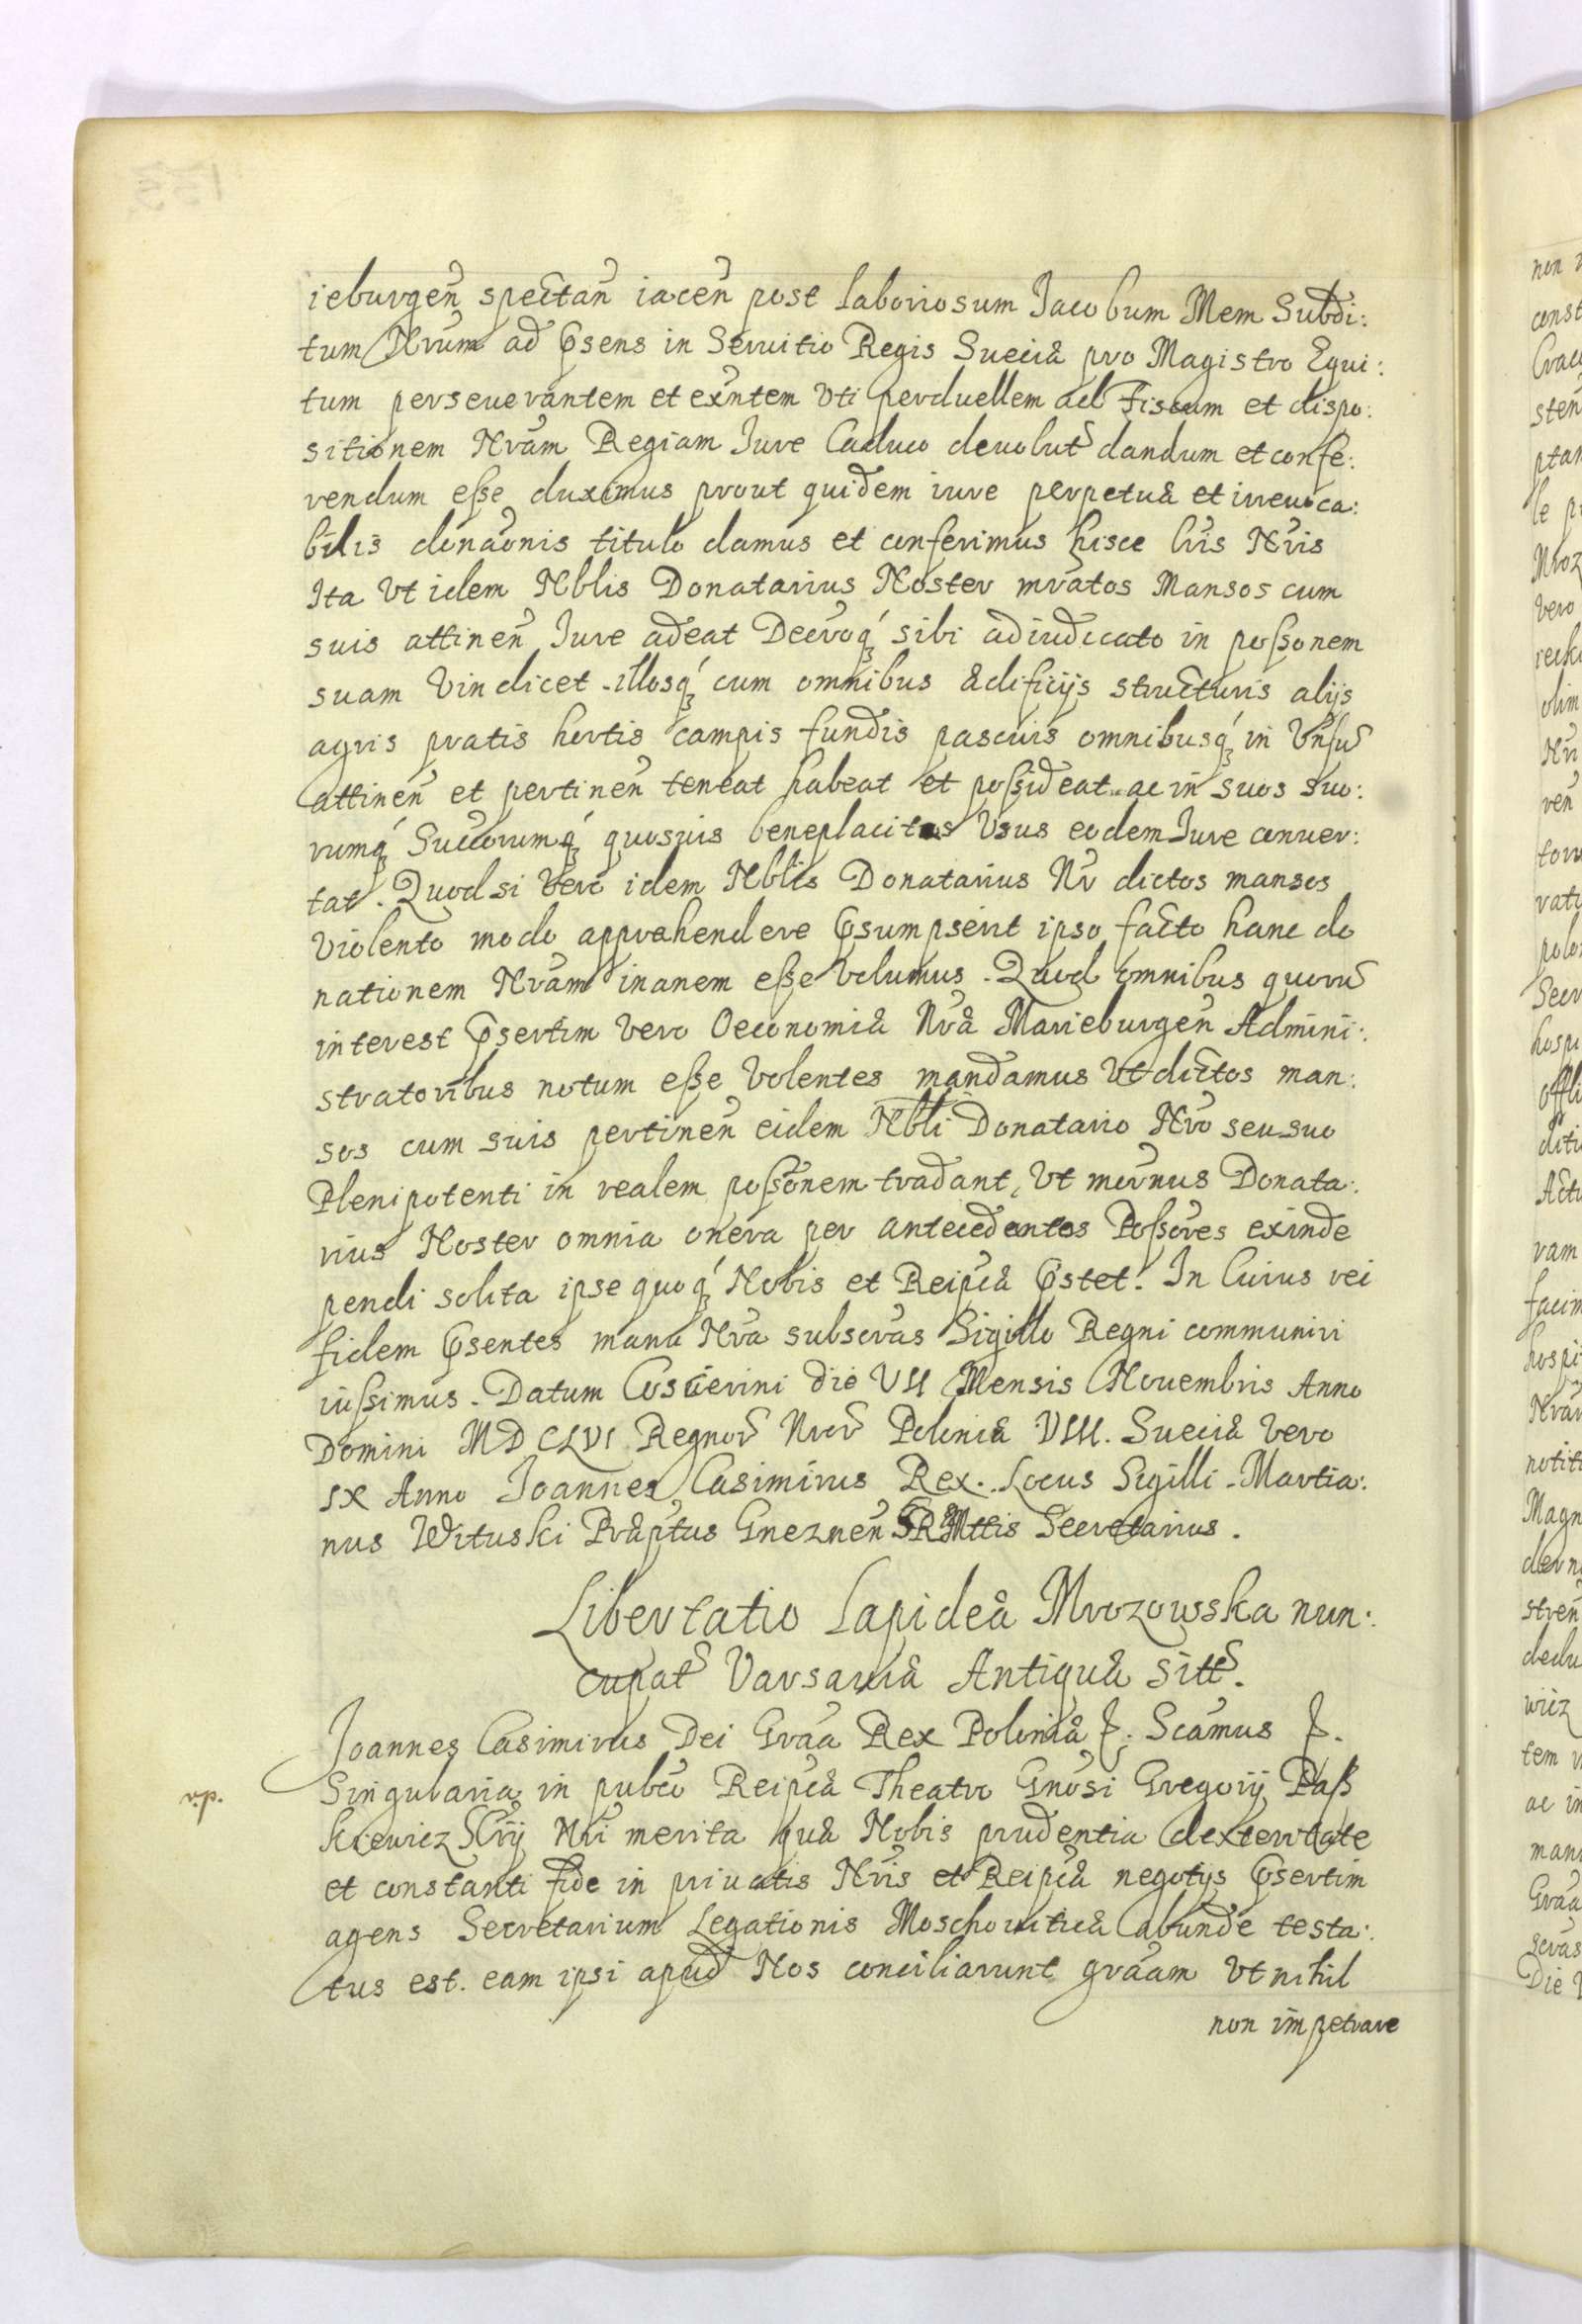 ieburgen̄ spectan̄ iacen̄ post laboriosum Jacobum Mem Subdi:
tum Nrum ad p̄sens in Seruitio Regis Sueciæ pro Magistro Equi:
tum perseuerantem et exn̄tem vti perduellem ad Fiscum et dispo:
sitionem Nram Regiam Iure Caduco deuolut dandum et confe:
rendum eſse duximus prout quidem iure perpetuæ et irreuoca:
bilis donaōnis titulo damus et conferimus hisce lris Nris
Ita Vt idem Nblis Donatarius Noster mratos Mansos cum
suis attinen̄ Iure adeat Decroq́ sibi adiudicato in poſsonem
suam Vindicet illosq́ cum omnibus ædificijs structuris alijs
agris pratis hortis campis fundis pascuis omnibusq́ in Vn̄su
attinen̄ et pertinen̄ teneat habeat et poſsideat ac in suos suo:
rumq́ Succorumq́ quosuis beneplacitos Vsus eodem Iure conuer:
tat. Quod si Vero idem Nblis Donatarius Nr dictos mansos
Violento modo apprehendere p̄sumpserit ipso facto hanc do
nationem Nram inanem eſse Volumus. Quod omnibus quoru
interest p̄sertim Vero Oeconomiæ Nræ Marieburgen̄ Admini:
stratoribus notum eſse Volentes mandamus Vt dictos man:
sos cum suis pertinen̄ eidem Nbli Donatario Nro seu suo
Plenipotenti in realem poſsonem tradant, Vt mrnus Donata:
rius Noster omnia onera per antecedentes Poſsores exinde
pendi solita ipse quoq́ Nobis et Reipcæ p̄stet. In Cuius rei
fidem p̄sentes manu Nra subscras Sigillo Regni communiri
iuſsimus. Datum Coscierini die VII Mensis Nouembris Anno
Domini MDCLVI. Regnor Nror Poloniæ VIII. Sueciæ Vero
IX Anno Joannes Casimirus Rex. Locus Sigilli. Martia:
nus Wituski Præptus Gneznen̄ SRMttis Secretarius.
Libertatio Lapideæ Mrozowska nun:
cupat Varsauiæ Antiquæ sitt.
Joannes Casimirus Dei Graa Rex Poloniæ &. Scamus &.
Singularia in pubco Reipcæ Theatro Gnosi Gregorij Paſs
kiewicz Srij Nri merita quæ Nobis prudentia dexteritate
et constanti fide in priuatis Nris et Reipcæ negotijs p̄sertim
agens Secretarium Legationis Moschouiticæ abunde testa:
tus est. eam ipsi apud Nos conciliarunt graam Vt nihil
non impetrare